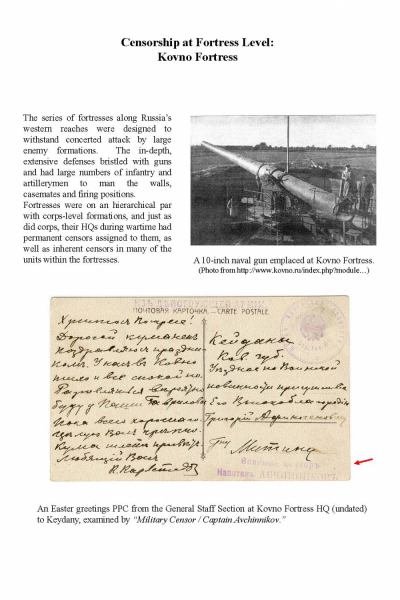 Censorship at Fortress Level:
Kovno Fortress
The series of fortresses along Russia's
western reaches were designed to
withstand concerted attack by large
enemy formations. The in-depth,
extensive defenses bristled with guns
and had large numbers of infantry and
artillerymen to man the walls,
casemates and firing positions.
Fortresses were on an hierarchical par
with corps-level formations, and just as
did corps, their HQs during wartime had
permanent censors assigned to them, as
well as inherent censors in many of the
units within the fortresses.
A 10-inch naval gun emplaced at Kovno Fortress.
(Photo from http://www.kovno.ru/index.php?module…)
ИЗЪ ДѢЙСТВУЮЩЕЙ АРМІИ
ПОЧТОВАЯ КАРТОЧКА. — CARTE POSTALE.
Христосъ Воскресе!
Дорогой
У насъ въ Ковно
тихо и все
буду у
Пока всего хорошаго
Любящій Васъ
Кейданы
Ков. губ.
Его Высокоблагородію
Григорій
Митину
Военный Цензоръ
Капитанъ
An Easter greetings PPC from the General Staff Section at Kovno Fortress HQ (undated)
to Keydany, examined by "Military Censor / Captain Avchinnikov."